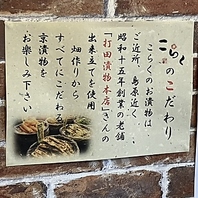 こらくのこだわり
こらくのお漬物は
ご近所、島原近く、
昭和十五年創業の老舗
「打田漬物本店」さんの
出来立てを使用
畑作りから
すべてにこだわる
京漬物を
お楽しみ下さい